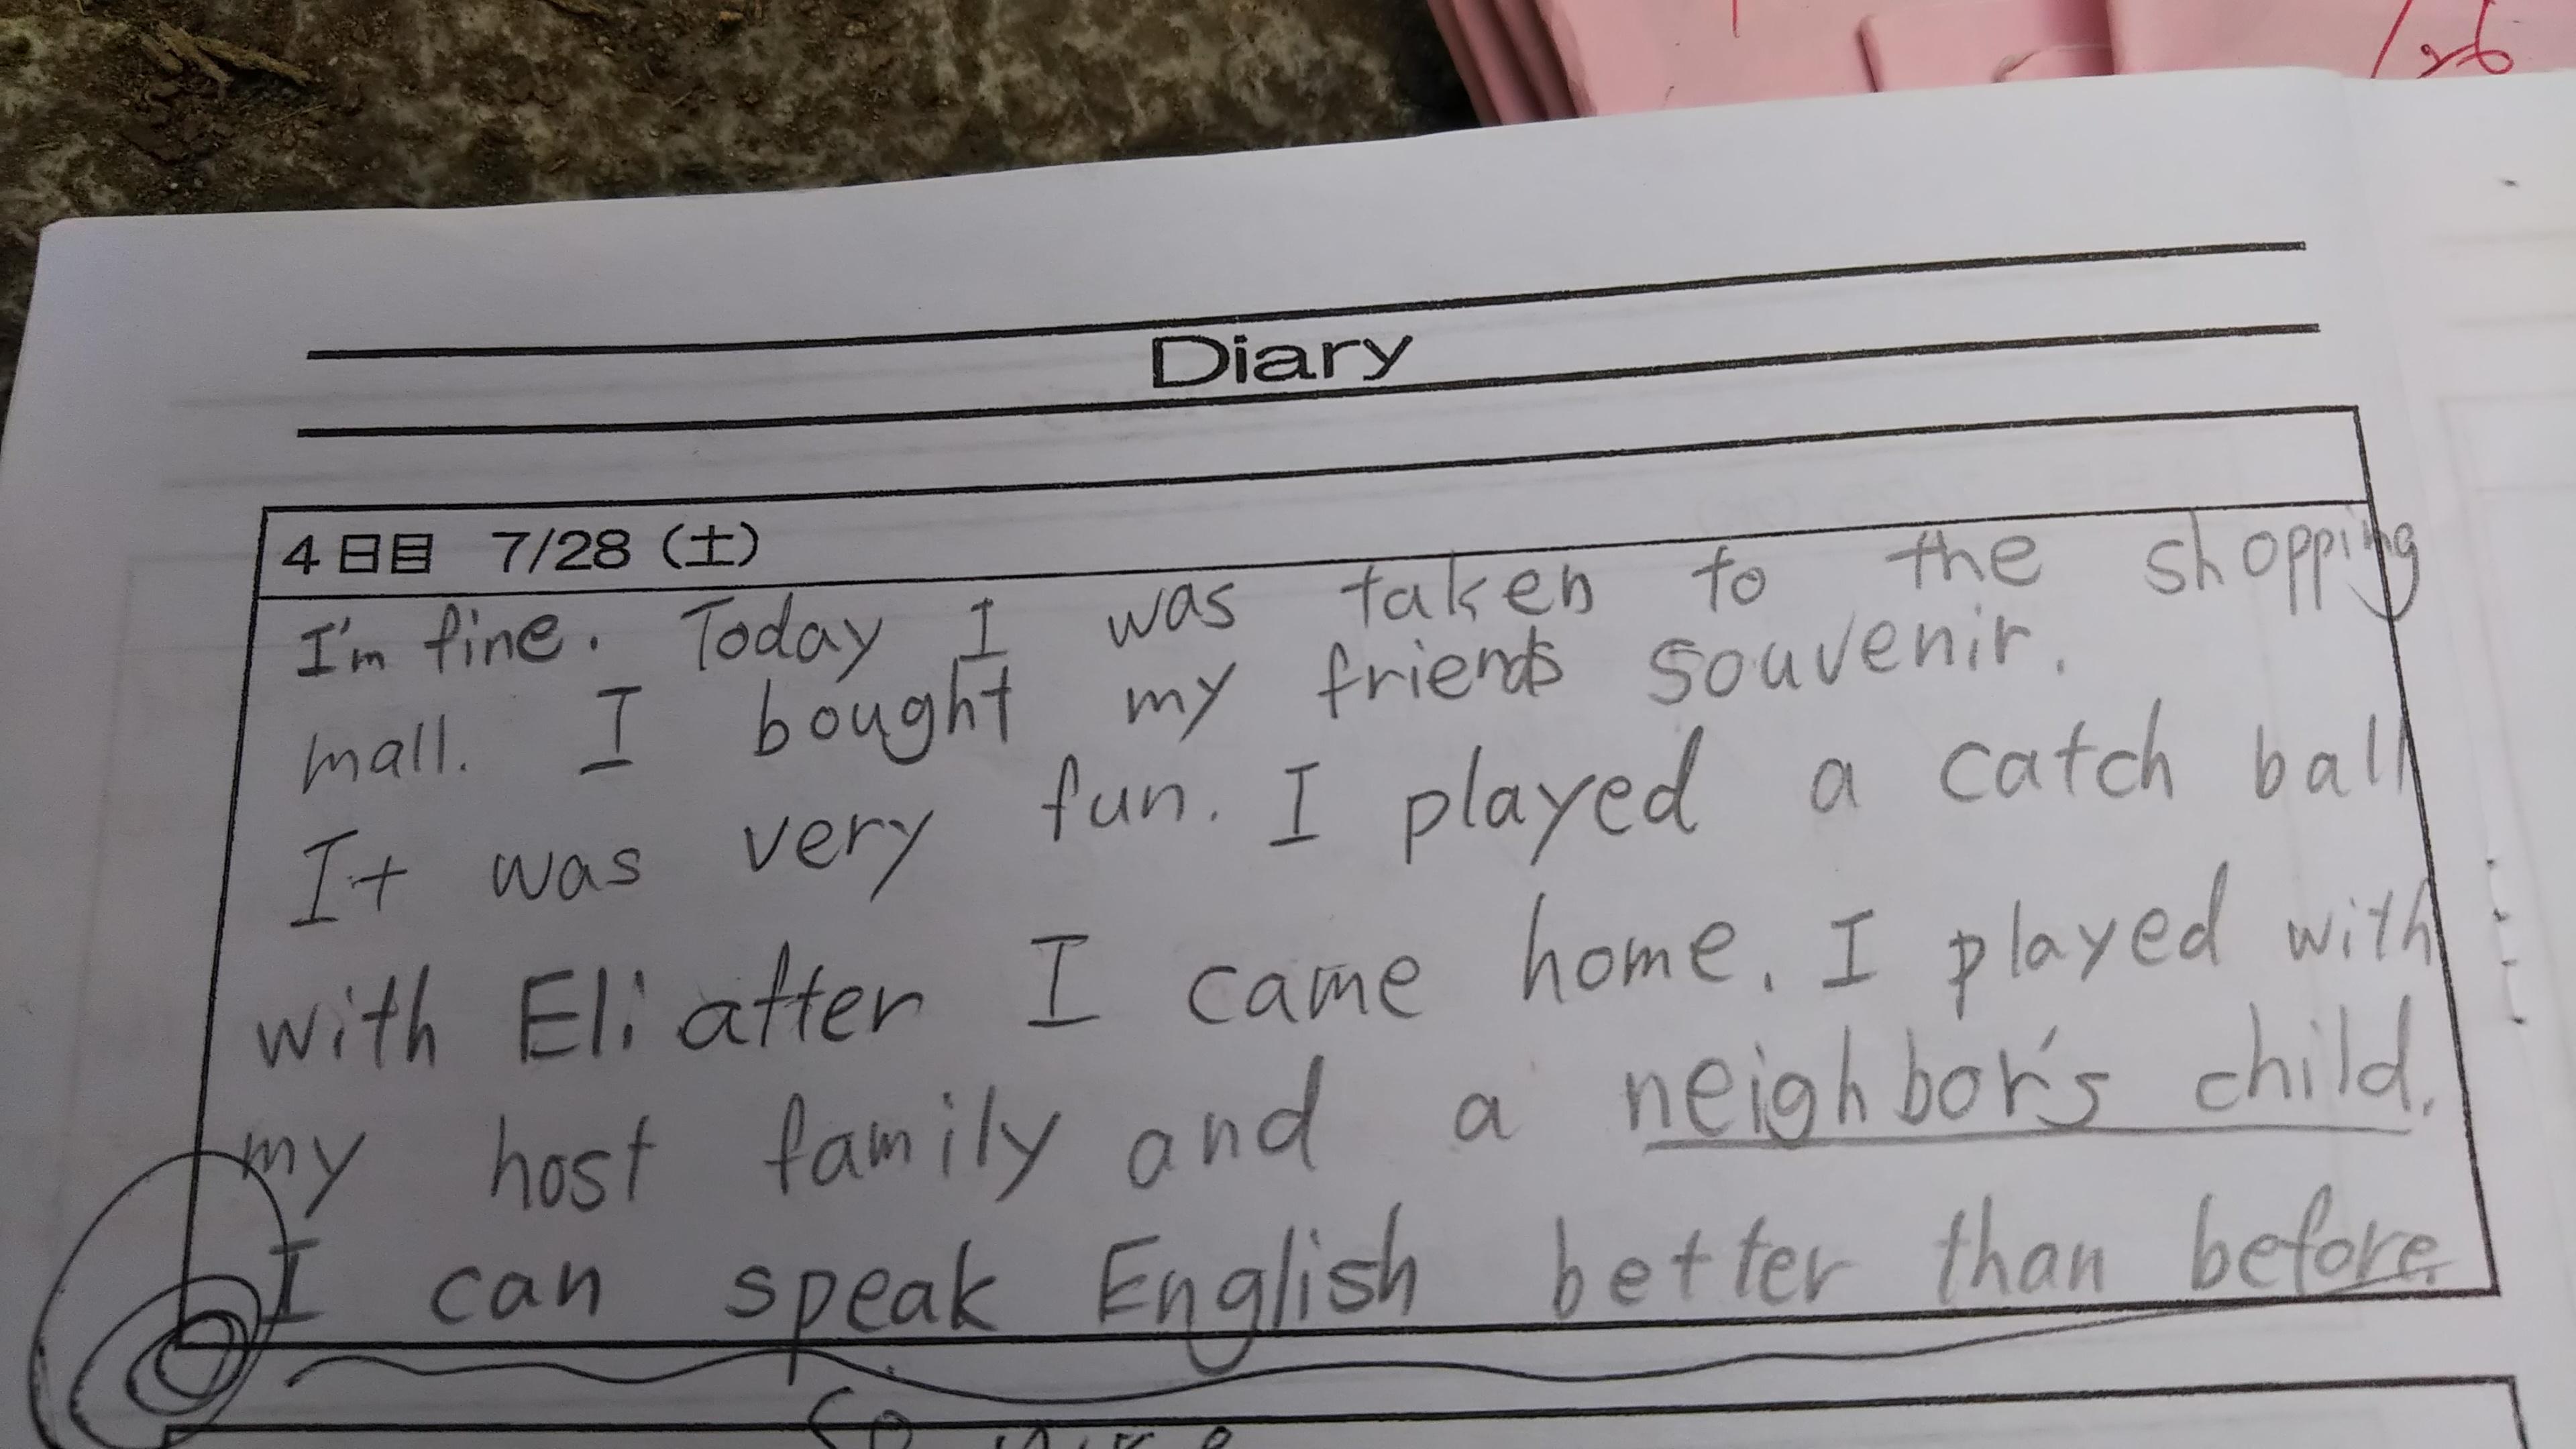 Diary
4日目 7/28 (土)
I'm fine. Today I was taken to the shopping
mall. I bought my friends souvenir.
It was very fun. I played a catch ball
with Eli after I came home. I played with
my host family and a neighbor's child.
I can speak English better than before.